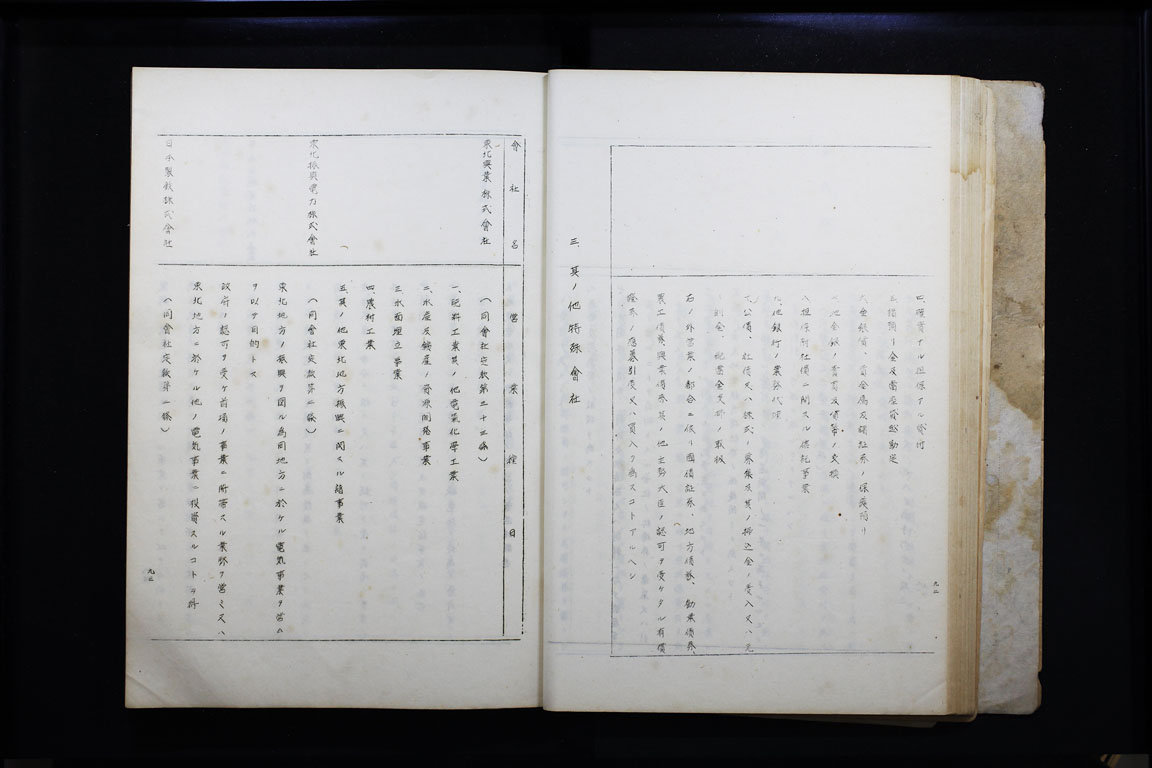 四、確實ナル担保アル貸付
五、諸預リ金及當座貸越勘定
六、金銀貨、貴金属及諸証券ノ保護預リ
七、地金銀ノ賣買及貨幣ノ交換
八、担保附社債ニ関スル信託事業
九、他銀行ノ業務代理
一〇、公債、社債又ハ株式ノ募集及其ノ拂込金ノ受入又ハ元
利金、配當金支拂ノ取扱
右ノ外営業ノ都合ニ依リ國債証券、地方債券、勧業債券、
農工債券、興業債券其ノ他主務大臣ノ認可ヲ受ケタル有價
證券ノ應募引受又ハ買入ヲ為スコトアルヘシ
三、其ノ他特殊會社
九二
會社名
営業種目
東北興業株式會社
(同會社定款第三十三條)
一、肥料工業其ノ他電氣化學工業
二、水産及鑛産ノ資源開発事業
三、水面埋立事業
四、農村工業
五、其ノ他東北地方振興ニ関スル諸事業
東北振興電力株式會社
(同會社定款第二條)
東北地方ノ振興ヲ図ル為同地方ニ於ケル電気事業ヲ営ム
ヲ以テ目的トス
政府ノ認可ヲ受ケ前項ノ事業ニ附帯スル業務ヲ営ミ又ハ
東北地方ニ於ケル他ノ電気事業ニ投資スルコトヲ得
日本製鉄株式會社
(同會社定款第二條)